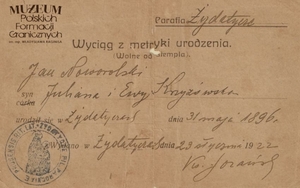 MUZEUM
Polskich
Formacji
Granicznych
Parafia Żydatycze
Wyciąg z metryki urodzenia.
(Wolne od stempla).
Jan Noworolski
syn Juliana i Ewy Krzyżówska
córka
urodził się w Żydatyczach dnia 31 maja 1896 r.
Wydano w Żydatyczach dnia 23 stycznia 1922